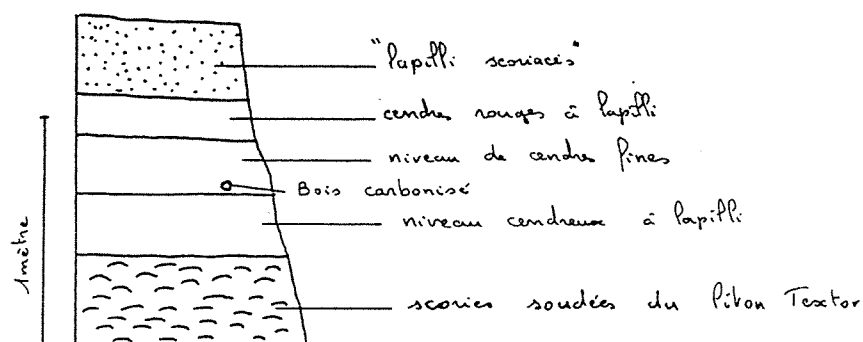 "lapilli scoriacés"
cendres rouges à lapilli
niveau de cendres fines
Bois carbonisé
niveau cendreux à lapilli
1 mètre
scories soudées du Piton Textor